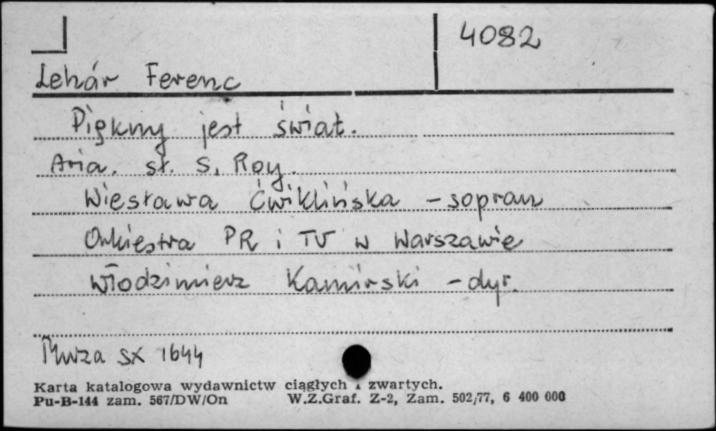 4082
Lehár Ferenc
Piękny jest świat.
Aria. sł. S. Roy.
Wiesława Ćwiklińska - sopran
Orkiestra PR i TV w Warszawie
Włodzimierz Kamirski - dyr.
Muza SX 1644
Karta katalogowa wydawnictw ciągłych i zwartych.
Pu-B-144 zam. 567/DW/On W.Z.Graf. Z-2, Zam. 502/77, 6 400 000